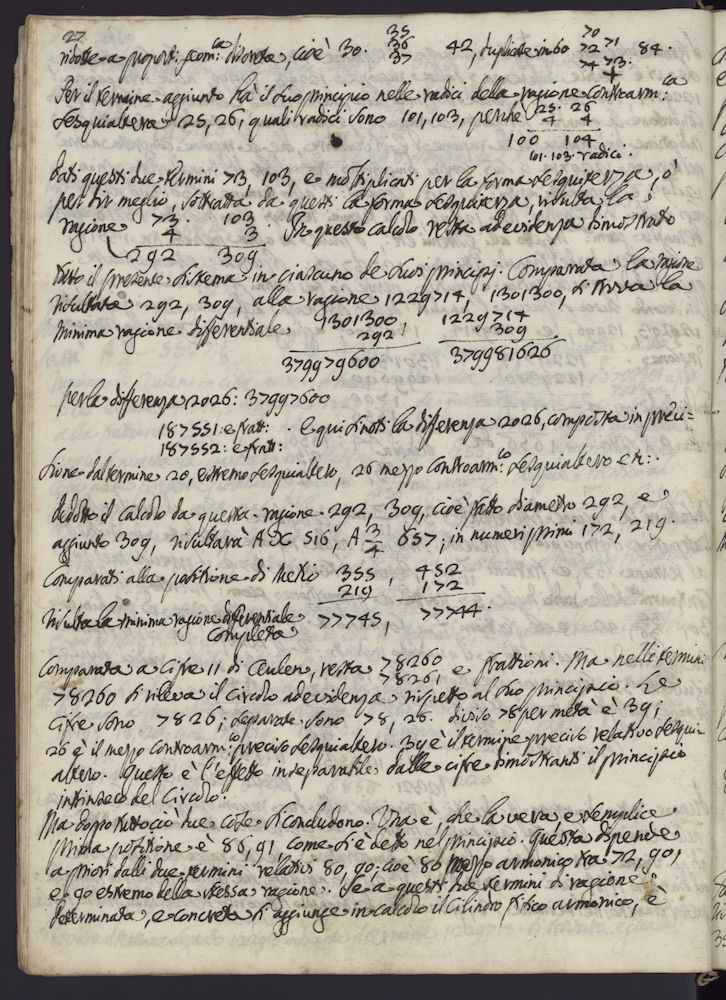 27
35 70
ridotte a proporz: geom:ca discreta, cioè 30. 36 42, duplicate in 60 72 71 84.
37 74 73.
Per il termine aggiunto ha il suo principio nelle radici della ragione controarm:ca
sesquialtera 25, 26, quali radici sono 101, 103, perche 25 . 26
4 4
100 104
101 . 103 . radici .
Dati questi due termini 73, 103, e moltiplicati per la forma sesquiterza, o
per dir meglio, sottratta da questi la forma sesquiterza, risulta la
ragione 73 . 103 . In questo calcolo resta ad evidenza dimostrato
4 3
292 309
tutto il presente sistema in ciascuno de suoi principj. Comparata la ragione
risultata 292, 309, alla ragione 1229714, 1301300, si trova la
minima ragione differentiale 1301300 1229714
292 309
379979600 379981626
per la differenza 2026: 37997600
187551: e fratt: . e qui si noti la differenza 2026, composta in preci=
187552: e fratt:
sione dal termine 20, estremo sesquialtero, 26 mezzo controarm:co sesquialtero etc:.
dedotto il calcolo da questa ragione 292, 309, cioè fatto diametro 292, e
aggiunto 309, risulterà A X 516, A 3/4 657; in numeri primi 172, 219.
Comparati alla positione di Metio 355 , 452
219 172
risulta la minima ragione differentiale 77745, 77744.
completa
Comparata a cifre 11 di Ceulen, resta 78260 e frattioni. Ma nelli termini
78261
78260 si rileva il circolo ad evidenza rispetto al suo principio. Le
cifre sono 7826; separate sono 78, 26. diviso 78 per metà è 39;
26 è il mezzo controarm:co preciso sesquialtero. 39 è il termine preciso relativo sesqui
altero. Questo è l'effetto inseparabile dalle cifre dimostranti il principio
intrinseco del circolo.
Ma doppo tutto ciò due cose si concludono. Una è, che la vera e semplice
prima positione è 86, 91, come si è detto nel principio. Questa dipende
a priori dalli due termini relativi 80, 90; cioè 80 mezzo armonico tra 72, 90,
e 90 estremo della stessa ragione. Se a questi due termini di ragione
determinata, e concreta si aggiunge in calcolo il cilindro fisico armonico, è